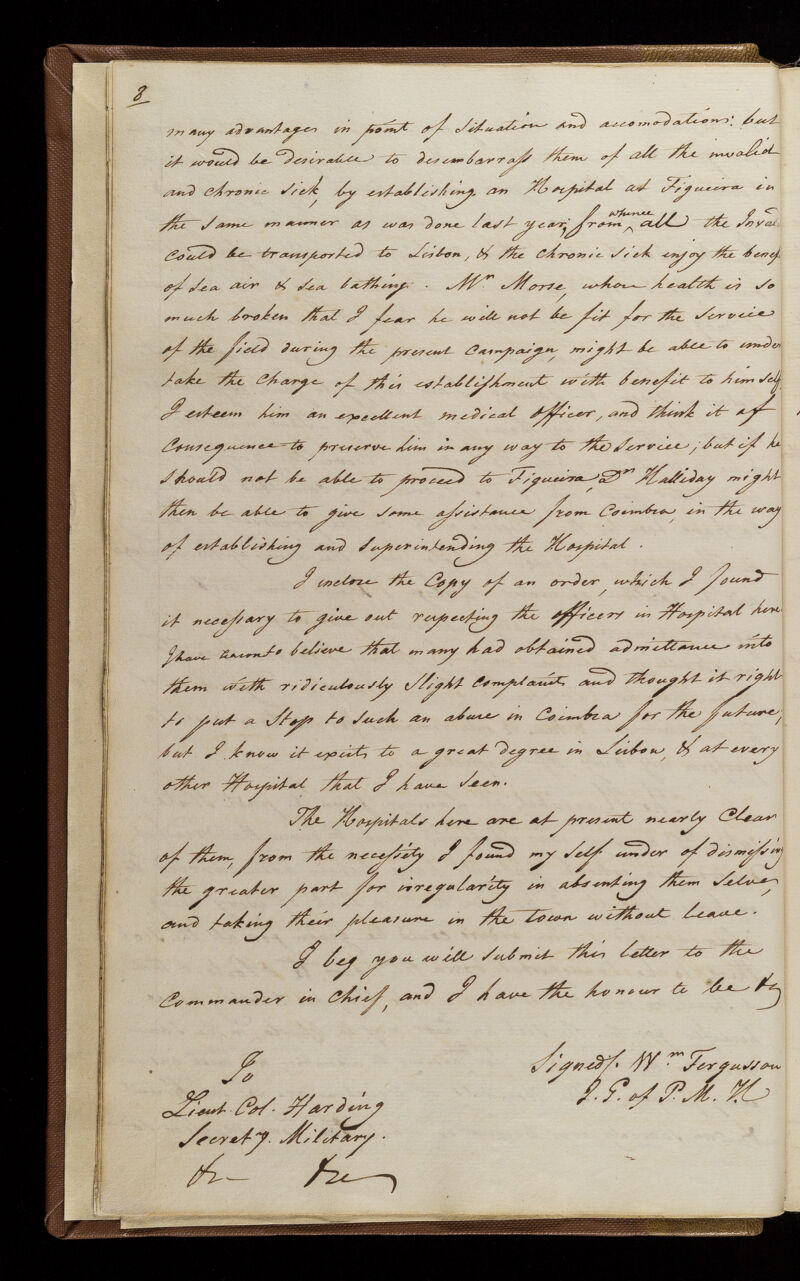 8
many advantages in point of situation and accomodations: but
it would be desirable to desembarrass them of all the invalid
and chronic sick, by establishing an Hospital at Figueira in
the same manner as was done last year; from whence all the
could be transported to Lisbon, & the chronic sick enjoy the
of sea air & sea bathing. Mr Morse, whose health is so
much broken that I fear he will not be fit for the service
of the field during the present Campaign, might be able to under
take the Charge of this establishment with benefit to him self
I esteem him an excellent medical officer, and think it of
Consequence to preserve him in any way to the Service; but if he
should not be able to proceed to Figueira, Dr Halliday might
then be able to give some assistance from Coimbra, in the way
of establishing and superintending the Hospital.
I inclose the Copy of an order, which I found
it necessary to give out respecting the officers in Hospital here
I have to believe that many had obtained admittance into
them with ridiculously slight complaints and thought it right
to put a stop to such an abuse in Coimbra for the future,
but I know it exists to a great degree in Lisbon, & at every
other Hospital that I have seen.
The Hospitals here are at present nearly Clear
of them, from the necessity I found my self under of dismissing
the greater part for irregularity in absenting them selves,
and taking their pleasure in the town without leave.
I beg you will submit this letter to the
Commander in Chief, and I have the honour to be &c
Signed/. Wm Fergusson
I. G. of P. M. H
To
Lieut. Col. Harding
Secrety. Military.
&c &c